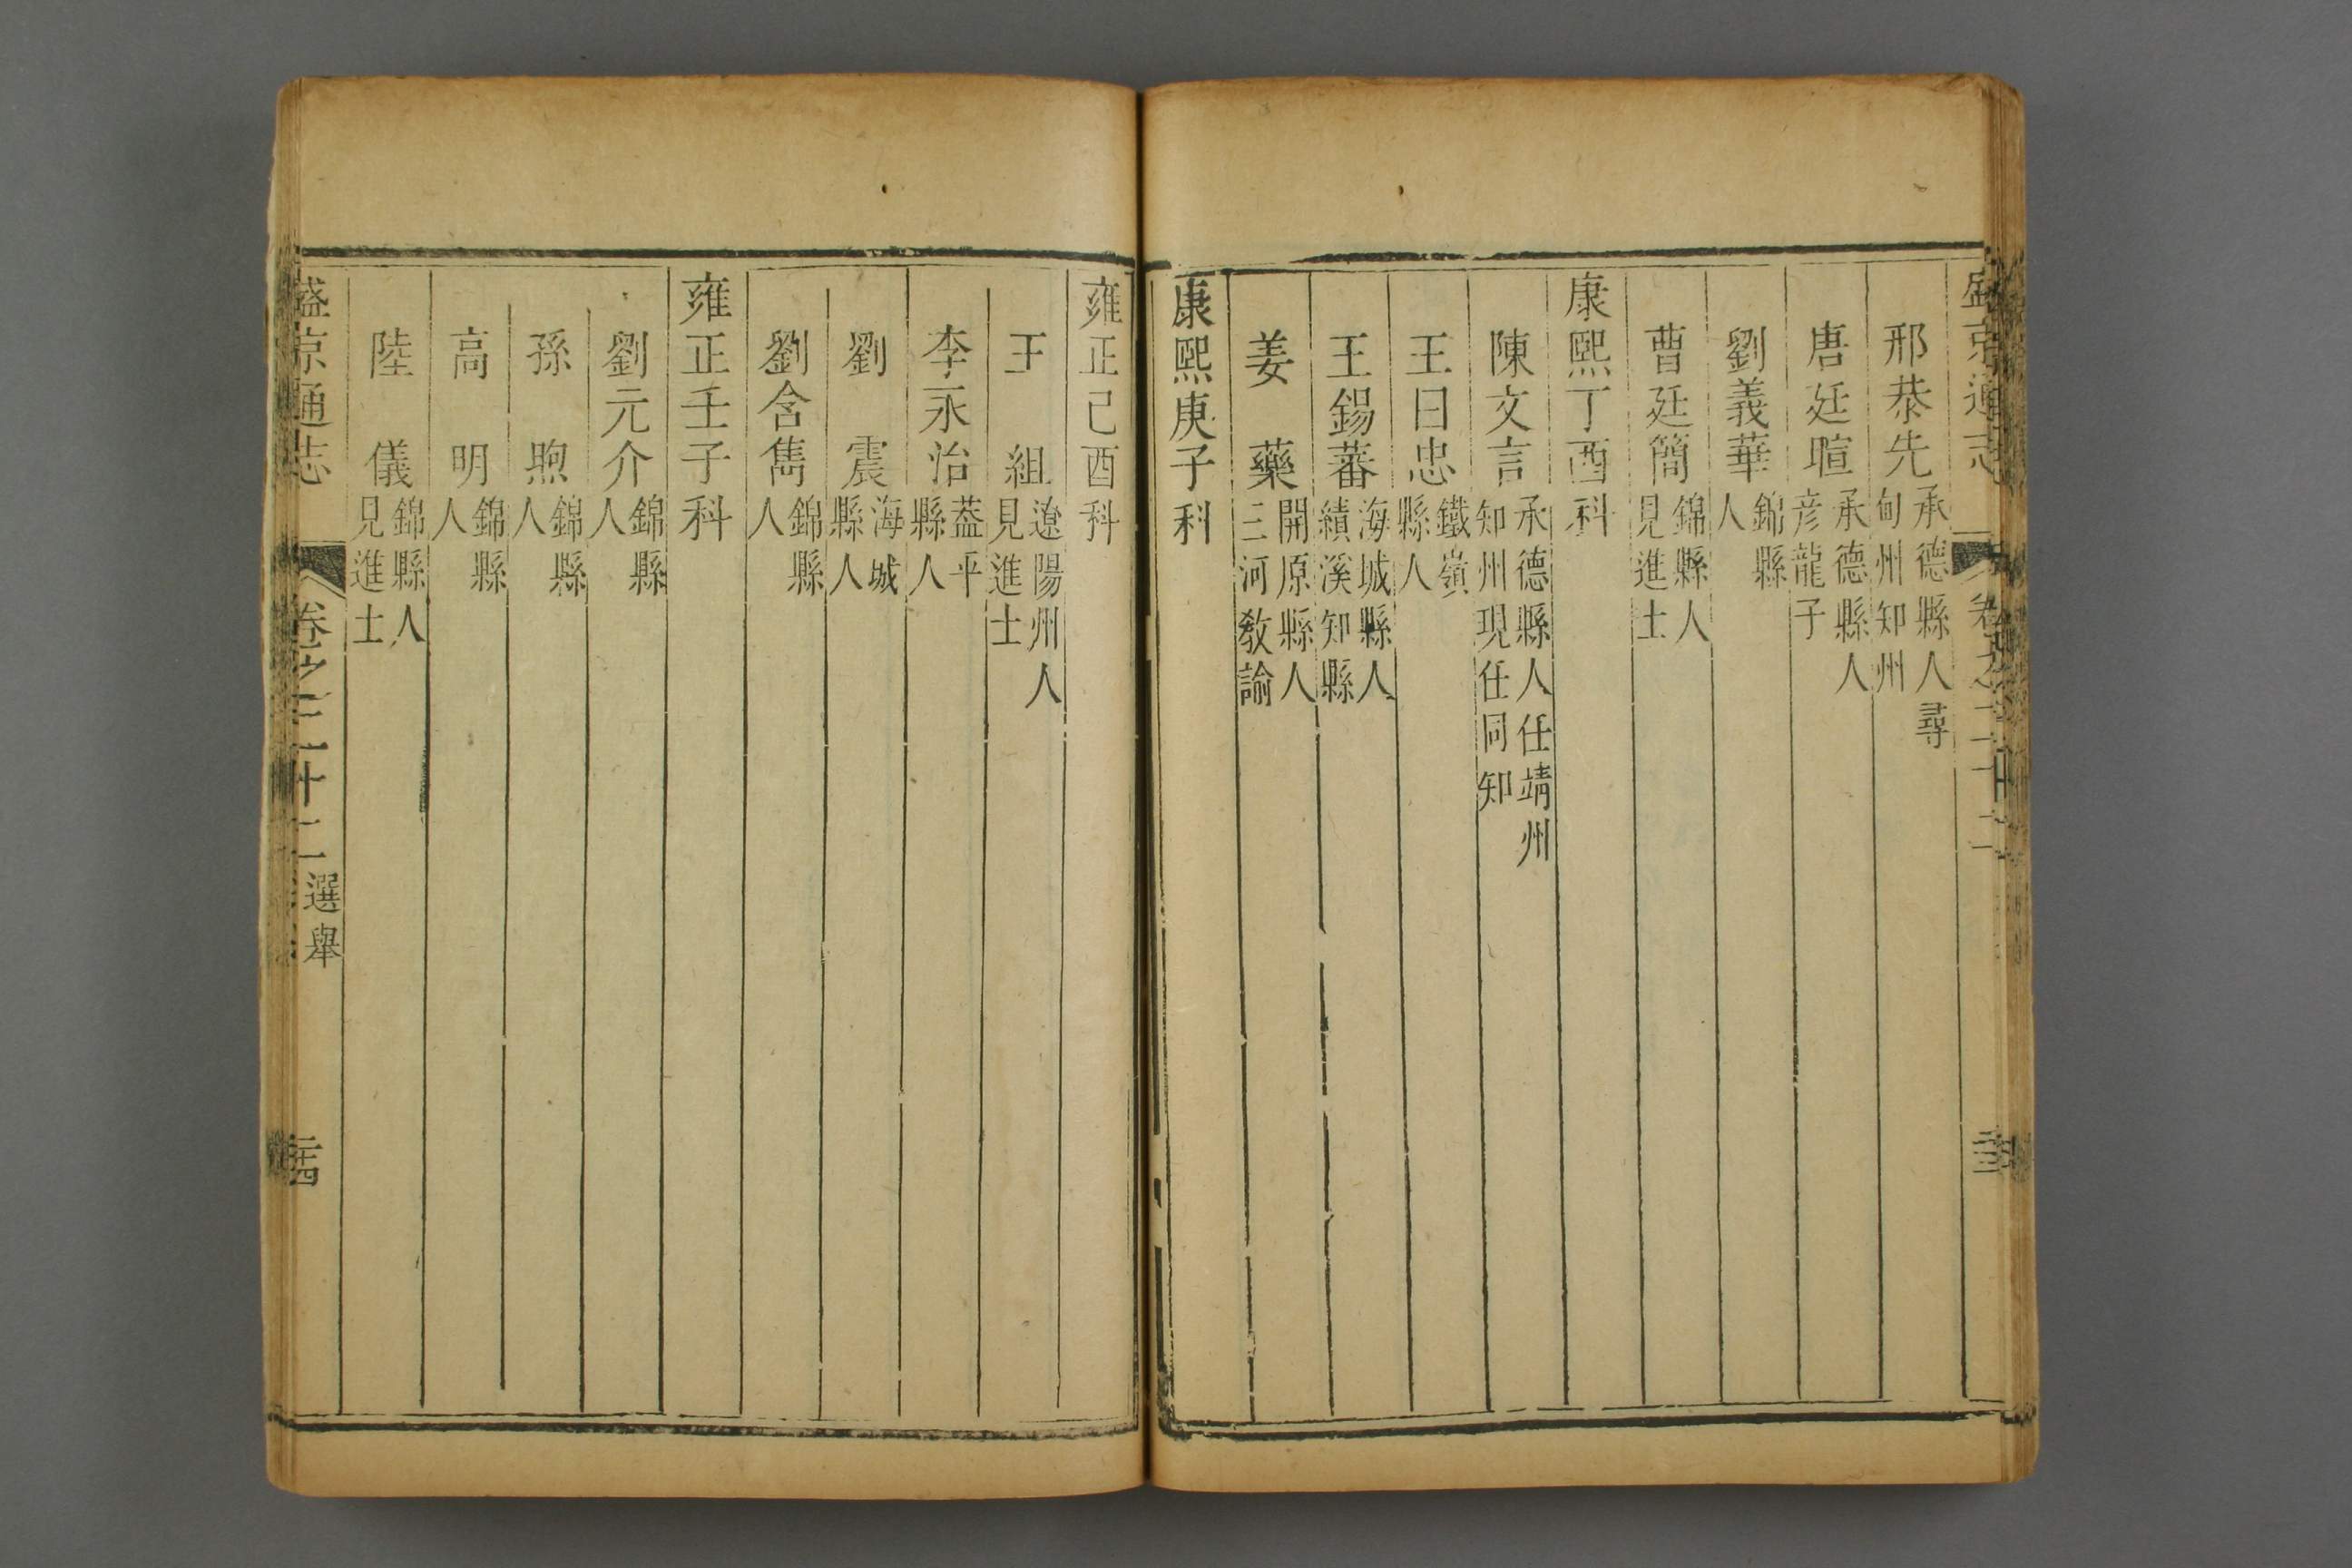 盛京通志 卷之三十二
邢恭先 承德縣人尋甸州知州
唐廷暄 承德縣人彦龍子
劉義華 錦縣人
曹廷簡 錦縣人見進士
康熙丁酉科
陳文言 承德縣人任靖州知州現任同知
王曰忠 鐵嶺縣人
王錫蕃 海城縣人績溪知縣
姜藥 開原縣人三河敎諭
康熙庚子科
雍正己酉科
王組 遼陽州人見進士
李永治 葢平縣人
劉震 海城縣人
劉含雋 錦縣人
雍正壬子科
劉元介 錦縣人
孫煦 錦縣人
高明 錦縣人
陸儀 錦縣人見進士
盛京通志 卷之三十二 選舉